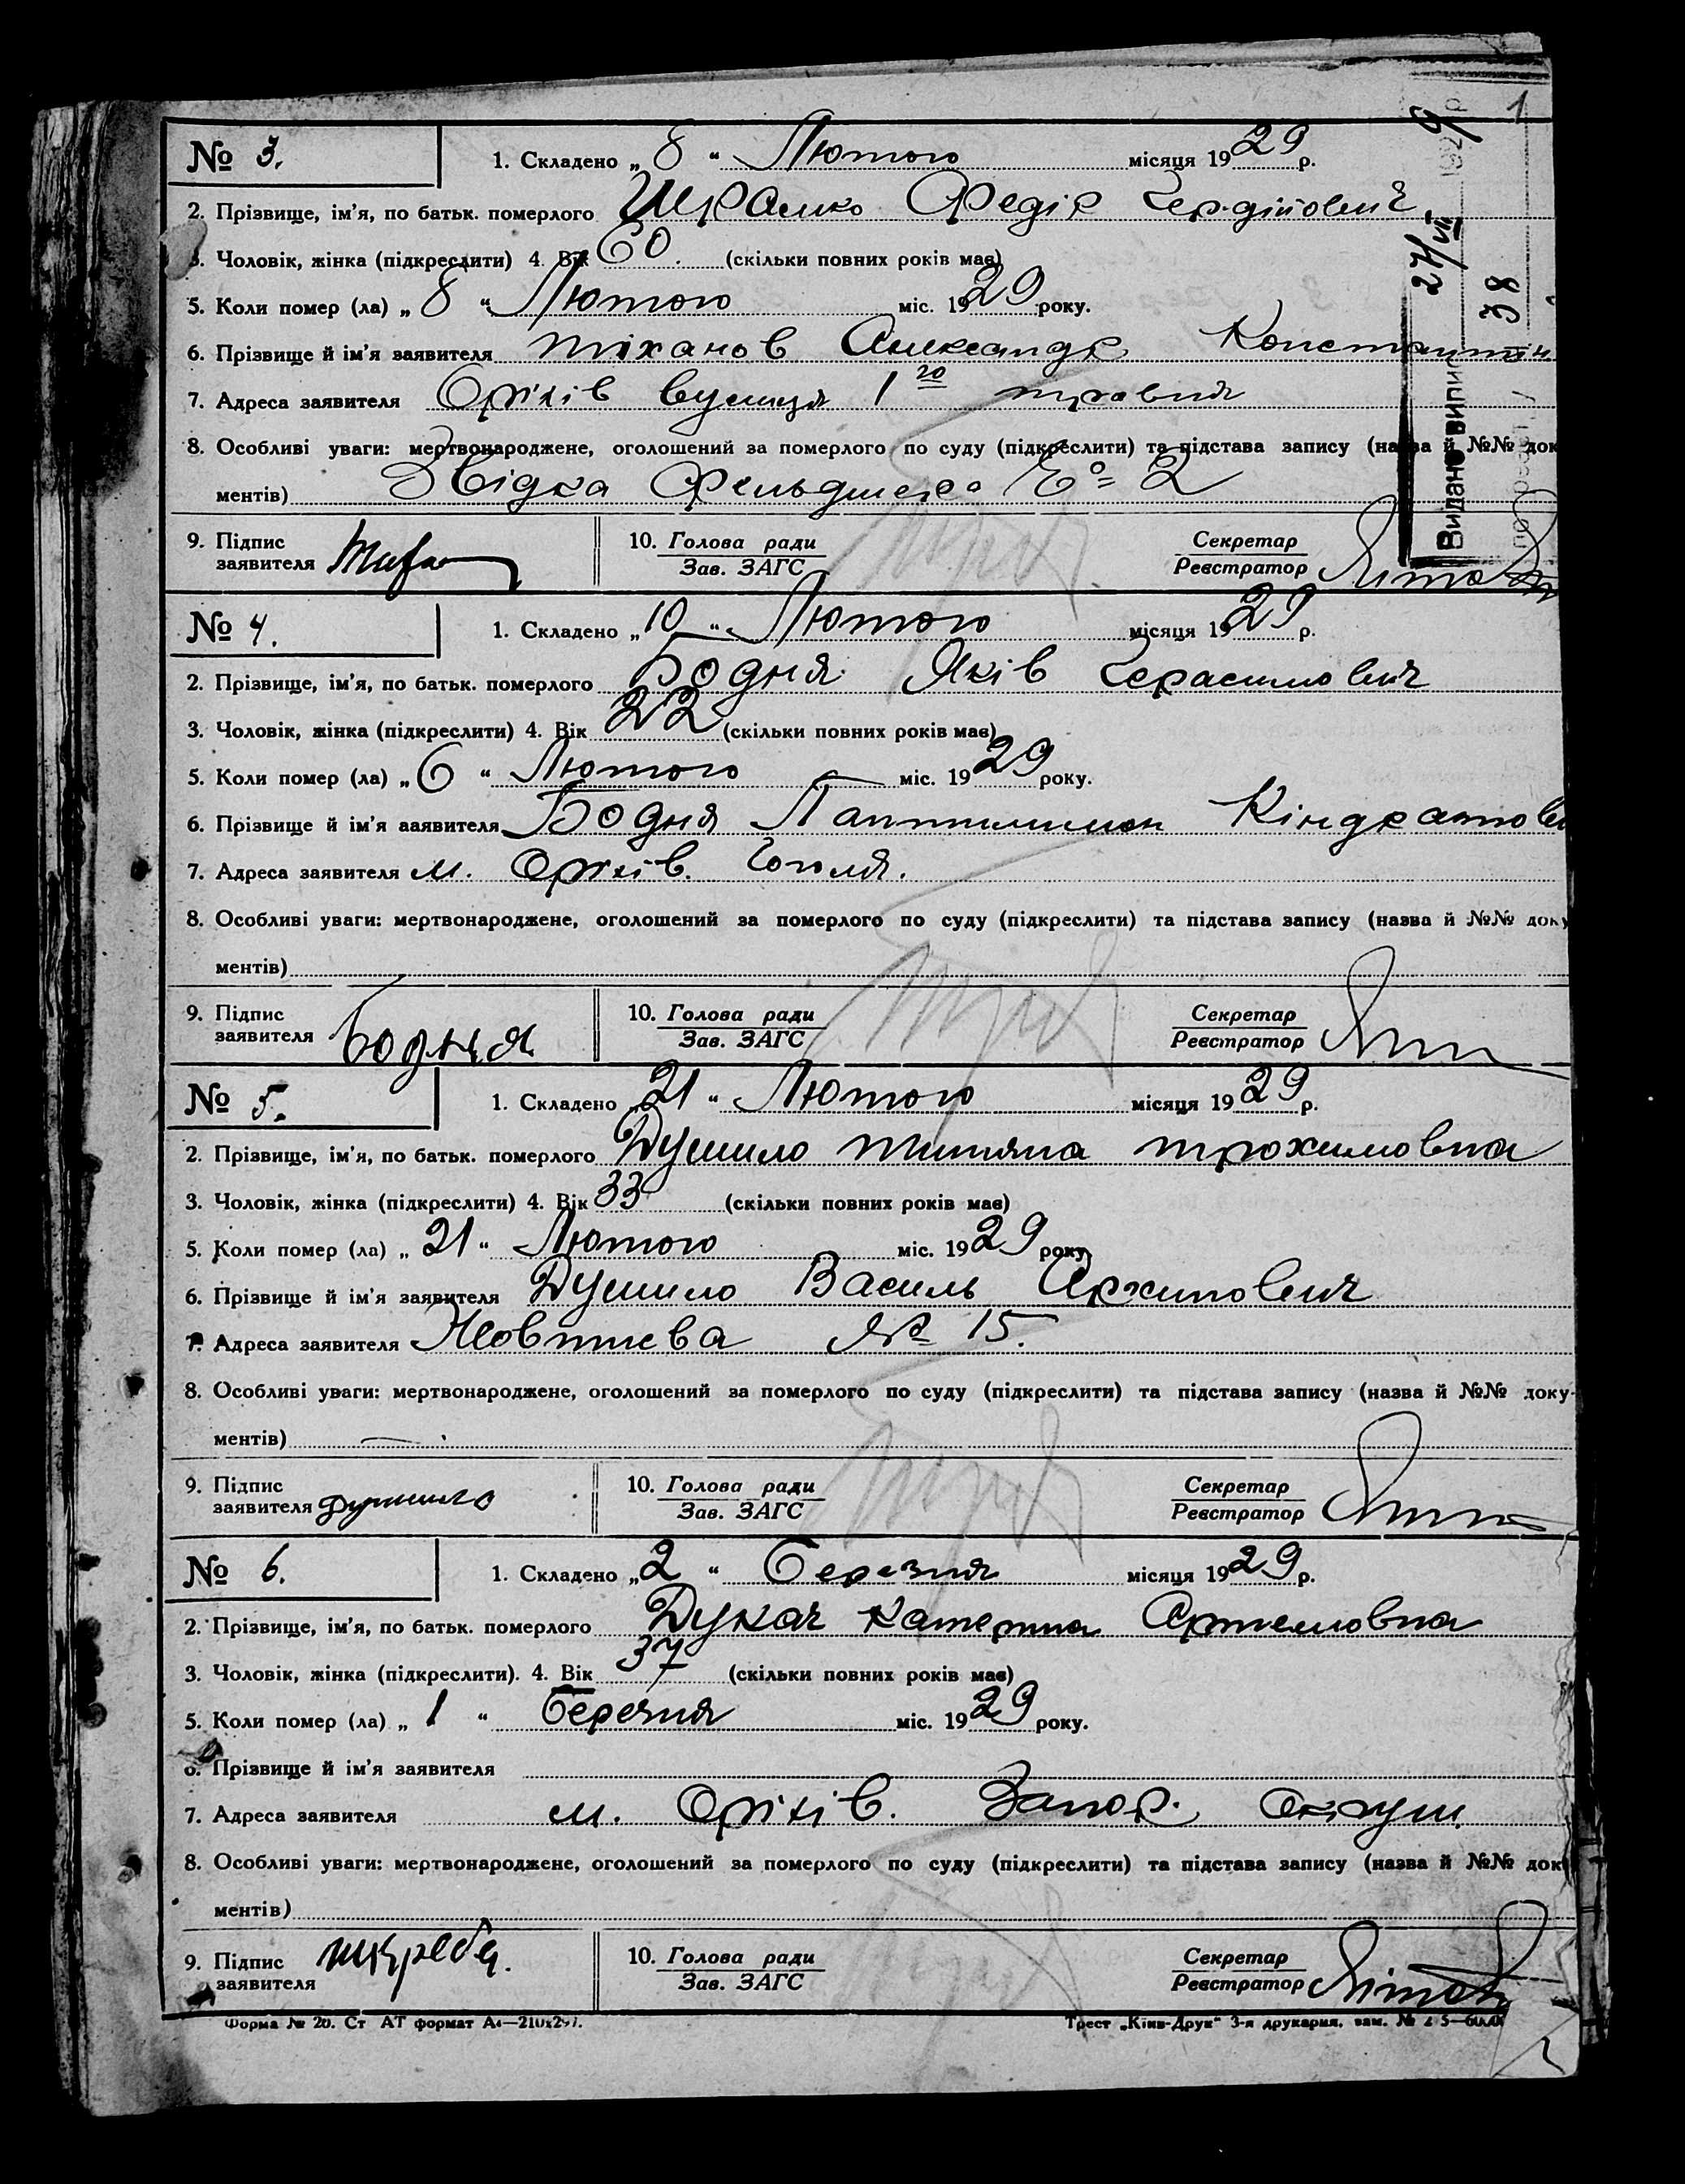 1
№ 3. 1. Складено „ 8 “ Лютого місяця 1929 р.
2. Прізвище, ім'я, по батьк. померлого Федір
3. Чоловік, жінка (підкреслити) 4. Вік 60. (скільки повних років має)
5. Коли помер (ла) „ 8 “ Лютого міс. 1929 року.
6. Прізвище й ім'я заявителя Тіханов Александр Константин
7. Адреса заявителя Оріхів вулиця 1го травня
8. Особливі уваги: мертвонароджене, оголошений за померлого по суду (підкреслити) та підстава запису (назва й №№ док
ментів) Звідка Фельдшера № 2
9. Підпис заявителя 10. Голова ради Зав. ЗАГС Секретар Реєстратор
Видано випис 27/VII
38
№ 4. 1. Складено „ 10 “ Лютого місяця 1929 р.
2. Прізвище, ім'я, по батьк. померлого Бодня Яків Герасимович
3. Чоловік, жінка (підкреслити) 4. Вік 22 (скільки повних років має)
5. Коли помер (ла) „ 6 “ Лютого міс. 1929 року.
6. Прізвище й ім'я заявителя Бодня Кіндратови
7. Адреса заявителя м. Оріхів. Гоголя.
8. Особливі уваги: мертвонароджене, оголошений за померлого по суду (підкреслити) та підстава запису (назва й №№ доку
ментів)
9. Підпис заявителя Бодня 10. Голова ради Зав. ЗАГС Секретар Реєстратор
№ 5. 1. Складено „ 21 “ Лютого місяця 1929 р.
2. Прізвище, ім'я, по батьк. померлого Душило Трохимовна
3. Чоловік, жінка (підкреслити) 4. Вік 33 (скільки повних років має)
5. Коли помер (ла) „ 21 “ Лютого міс. 1929 року
6. Прізвище й ім'я заявителя Душило Василь Архипович
7. Адреса заявителя Жовтнева № 15.
8. Особливі уваги: мертвонароджене, оголошений за померлого по суду (підкреслити) та підстава запису (назва й №№ доку-
ментів)
9. Підпис заявителя Душило 10. Голова ради Зав. ЗАГС Секретар Реєстратор
№ 6. 1. Складено „ 2 “ Березня місяця 1929 р.
2. Прізвище, ім'я, по батьк. померлого Дукач Катерина Артемовна
3. Чоловік, жінка (підкреслити). 4. Вік 37 (скільки повних років має)
5. Коли помер (ла) „ 1 “ Березня міс. 1929 року.
6. Прізвище й ім'я заявителя
7. Адреса заявителя м. Оріхів. Запор. Округи
8. Особливі уваги: мертвонароджене, оголошений за померлого по суду (підкреслити) та підстава запису (назва й №№ док
ментів)
9. Підпис заявителя Шкреба. 10. Голова ради Зав. ЗАГС Секретар Реєстратор
Форма № 20. Ст АТ формат А4—210х297. Трест „Київ-Друк“ 3-я друкарня. зам. №